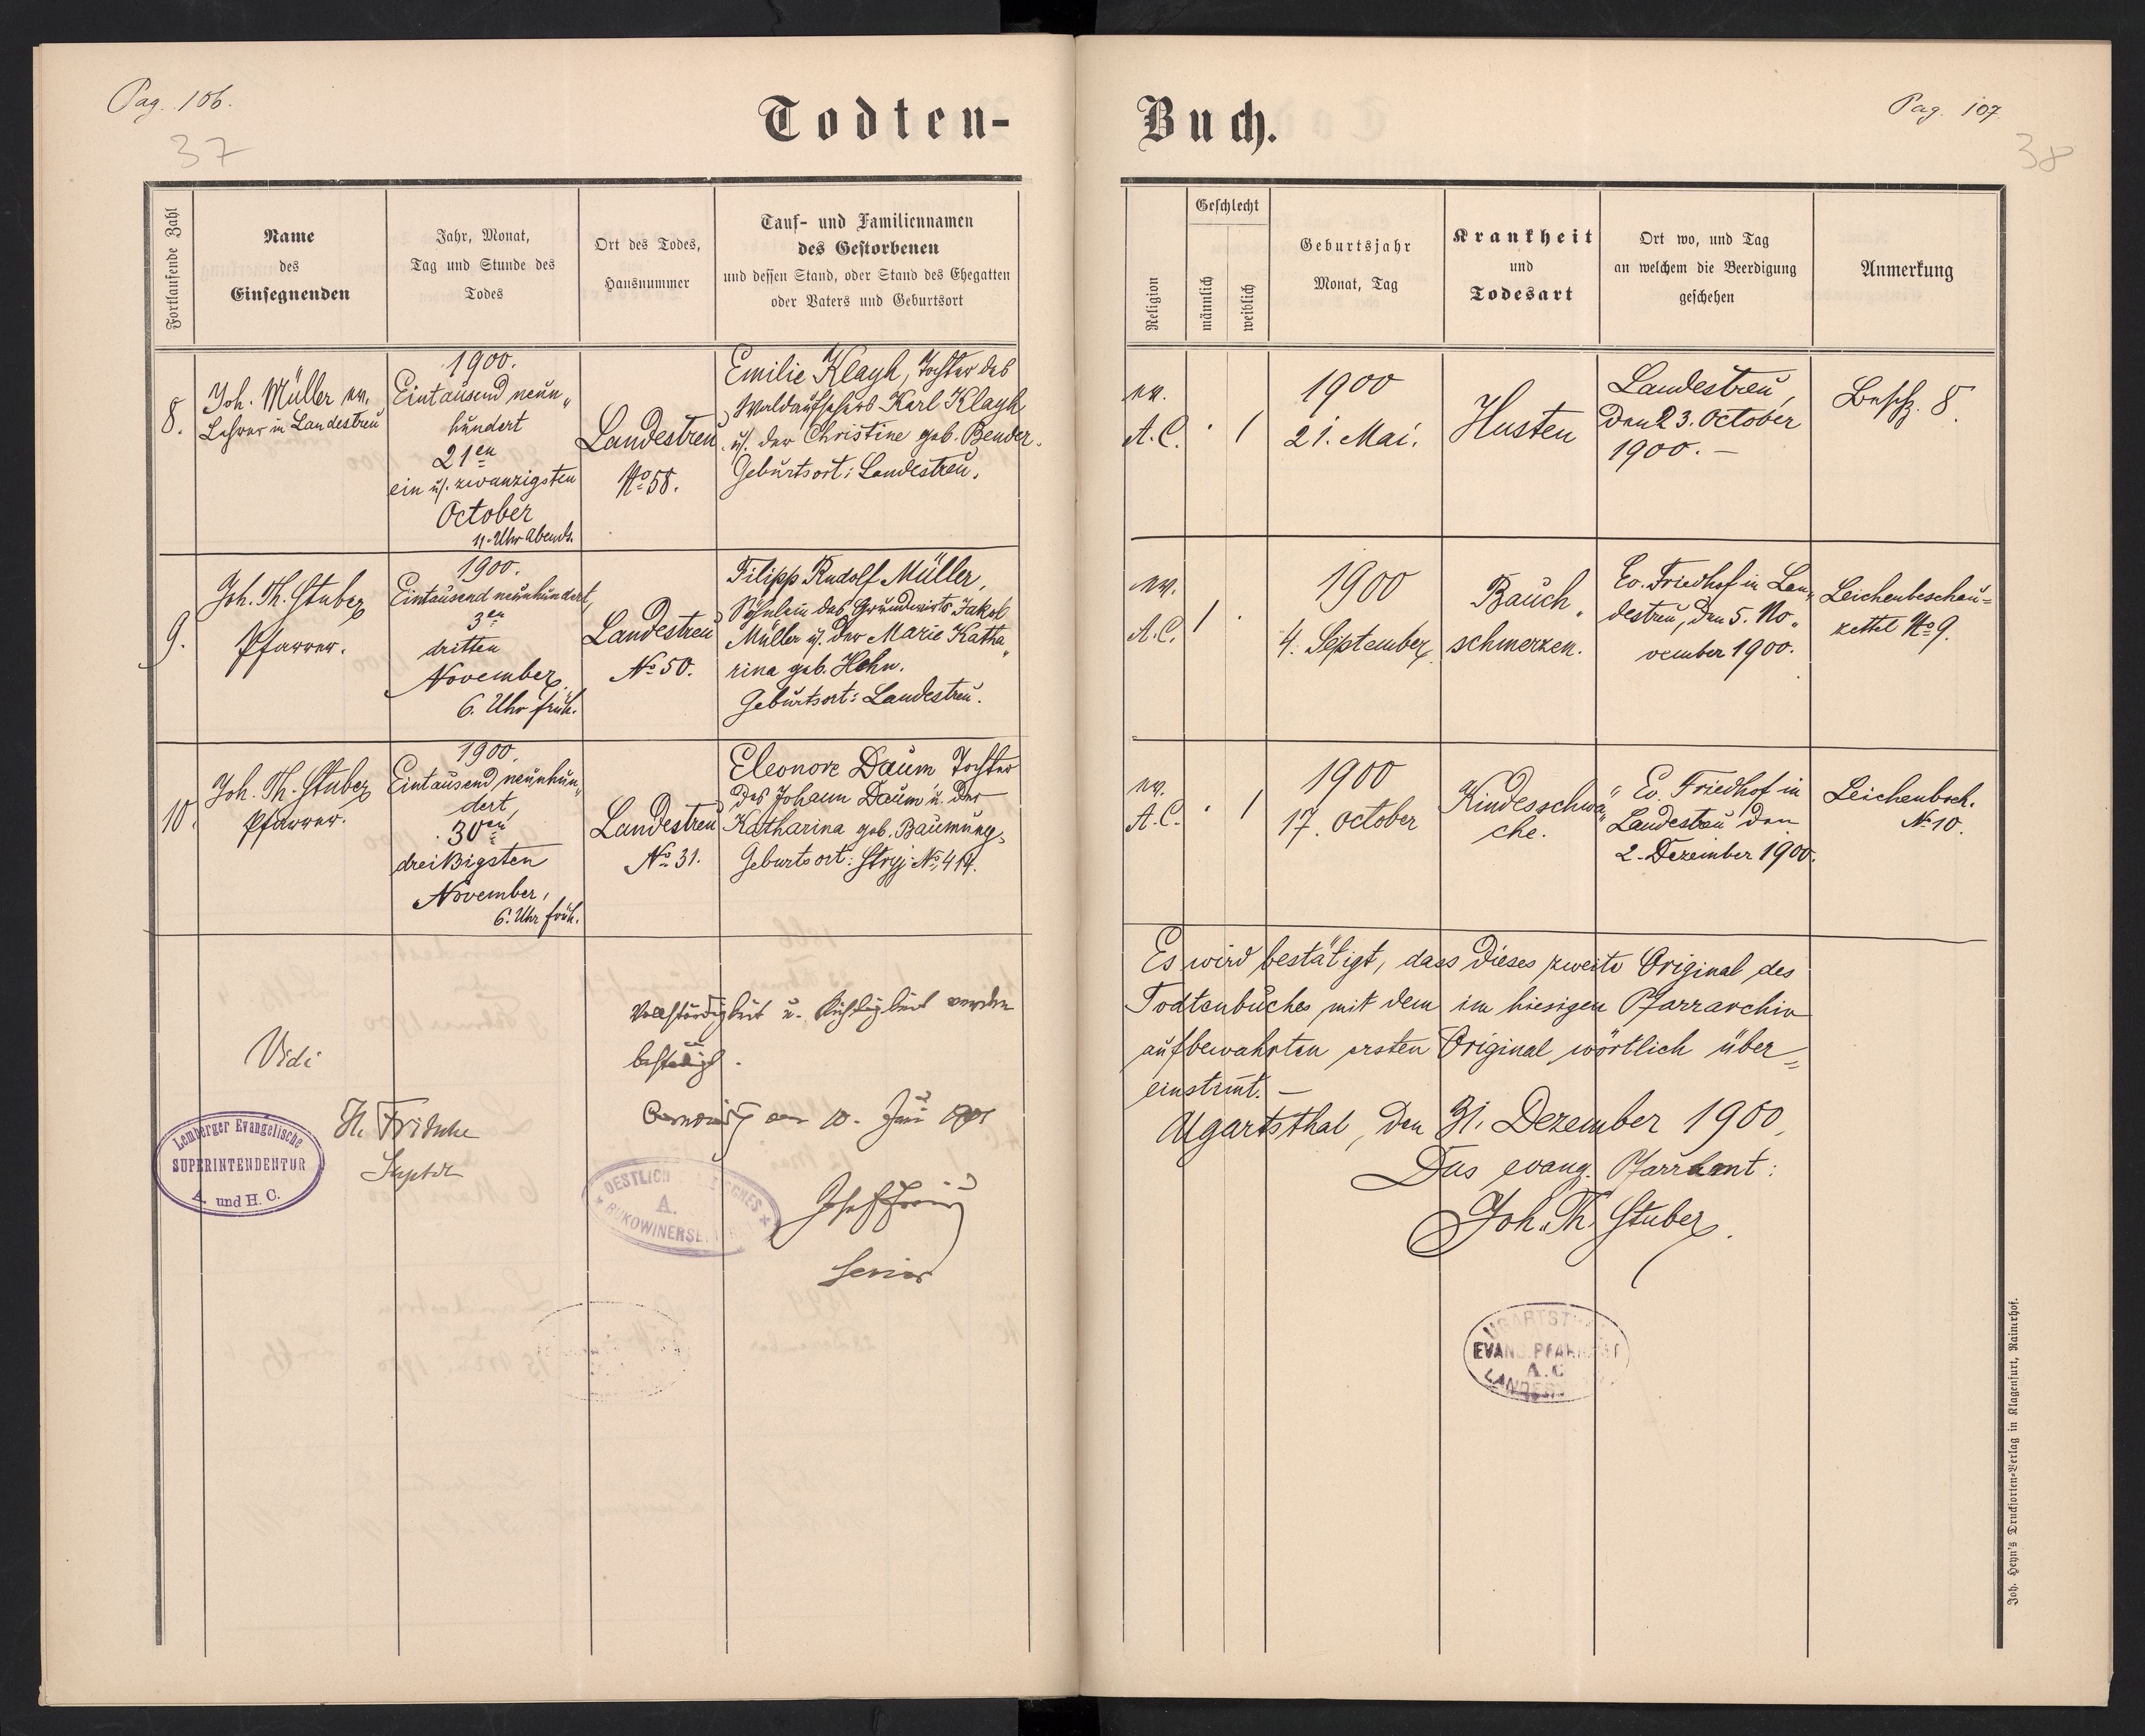 Pag. 106.
37
Todten-
Fortlaufende Zahl
Name
des
Einsegnenden
Jahr, Monat,
Tag und Stunde des
Todes
Ort des Todes,
Hausnummer
Tauf- und Familiennamen
des Gestorbenen
und dessen Stand, oder Stand des Ehegatten
oder Vaters und Geburtsort
8.
Joh. Müller ev.
Lehrer in Landestreu
1900.
Eintausend neun„
hundert
21en
ein u. zwanzigsten
October
11. Uhr Abends.
Landestreu
No 58.
Emilie Klayh, Tochter des
Waldaufsehers Karl Klayh
u. der Christine geb. Bender.
Geburtsort: Landestreu.
9.
Joh. Th. Stuber
Pfarrer.
1900.
Eintausend neunhundert,
3en
dritten
November
6. Uhr früh.
Landestreu
No 50.
Filipp Rudolf Müller,
Söhnlein des Grundwirts Jakob
Müller u. der Marie Katha„
rina geb. Hohn.
Geburtsort: Landestreu.
10.
Joh. Th. Stuber
Pfarrer.
1900.
Eintausend neunhun„
dert,
30en
dreißigsten
November,
6. Uhr früh.
Landestreu
No 31.
Eleonore Daum Tochter
des Johann Daum u. der
Katharina geb. Baumung,
Geburtsort: Stryj No 414.
Vollständigkeit u. Richtigkeit werden
bestätigt.
10. Juni 1901
Senior
Vidi
Suptdt
Lemberger Evangelische
SUPERINTENDENTUR
A. und H. C.
OESTLICH
A.
BUKOWINERSE
Buch.
Pag. 107
38
Religion
Geschlecht
männlich
weiblich
Geburtsjahr
Monat, Tag
Krankheit
und
Todesart
Ort wo, und Tag
an welchem die Beerdigung
geschehen
Anmerkung
ev.
A.C.
1
1900
21. Mai.
Husten
Landestreu,
den 23. October
1900. —
Besch. 8.
ev.
A.C.
1
1900
4. September
Bauch„
schmerzen.
Ev. Friedhof in Lan„
destreu, den 5. No„
vember 1900.
Leichenbeschau=
zettel No 9.
ev.
A.C.
1
1900
17. October
Kindesschwä„
che.
Ev. Friedhof in
Landestreu den
2. Dezember 1900.
Leichenbsch.
No 10.
Es wird bestätigt, dass dieses zweite Original des
Todtenbuches mit dem im hiesigen Pfarrarchiv
aufbewahrten ersten Original wörtlich über=
einstimt. —
Ugartsthal, den 31. Dezember 1900,
Das evang. Pfarramt:
Joh. Th. Stuber.
EVANG. PFARRAMT
A. C.
Joh. Heyn's Drucksorten-Verlag in Klagenfurt, Rainerhof.